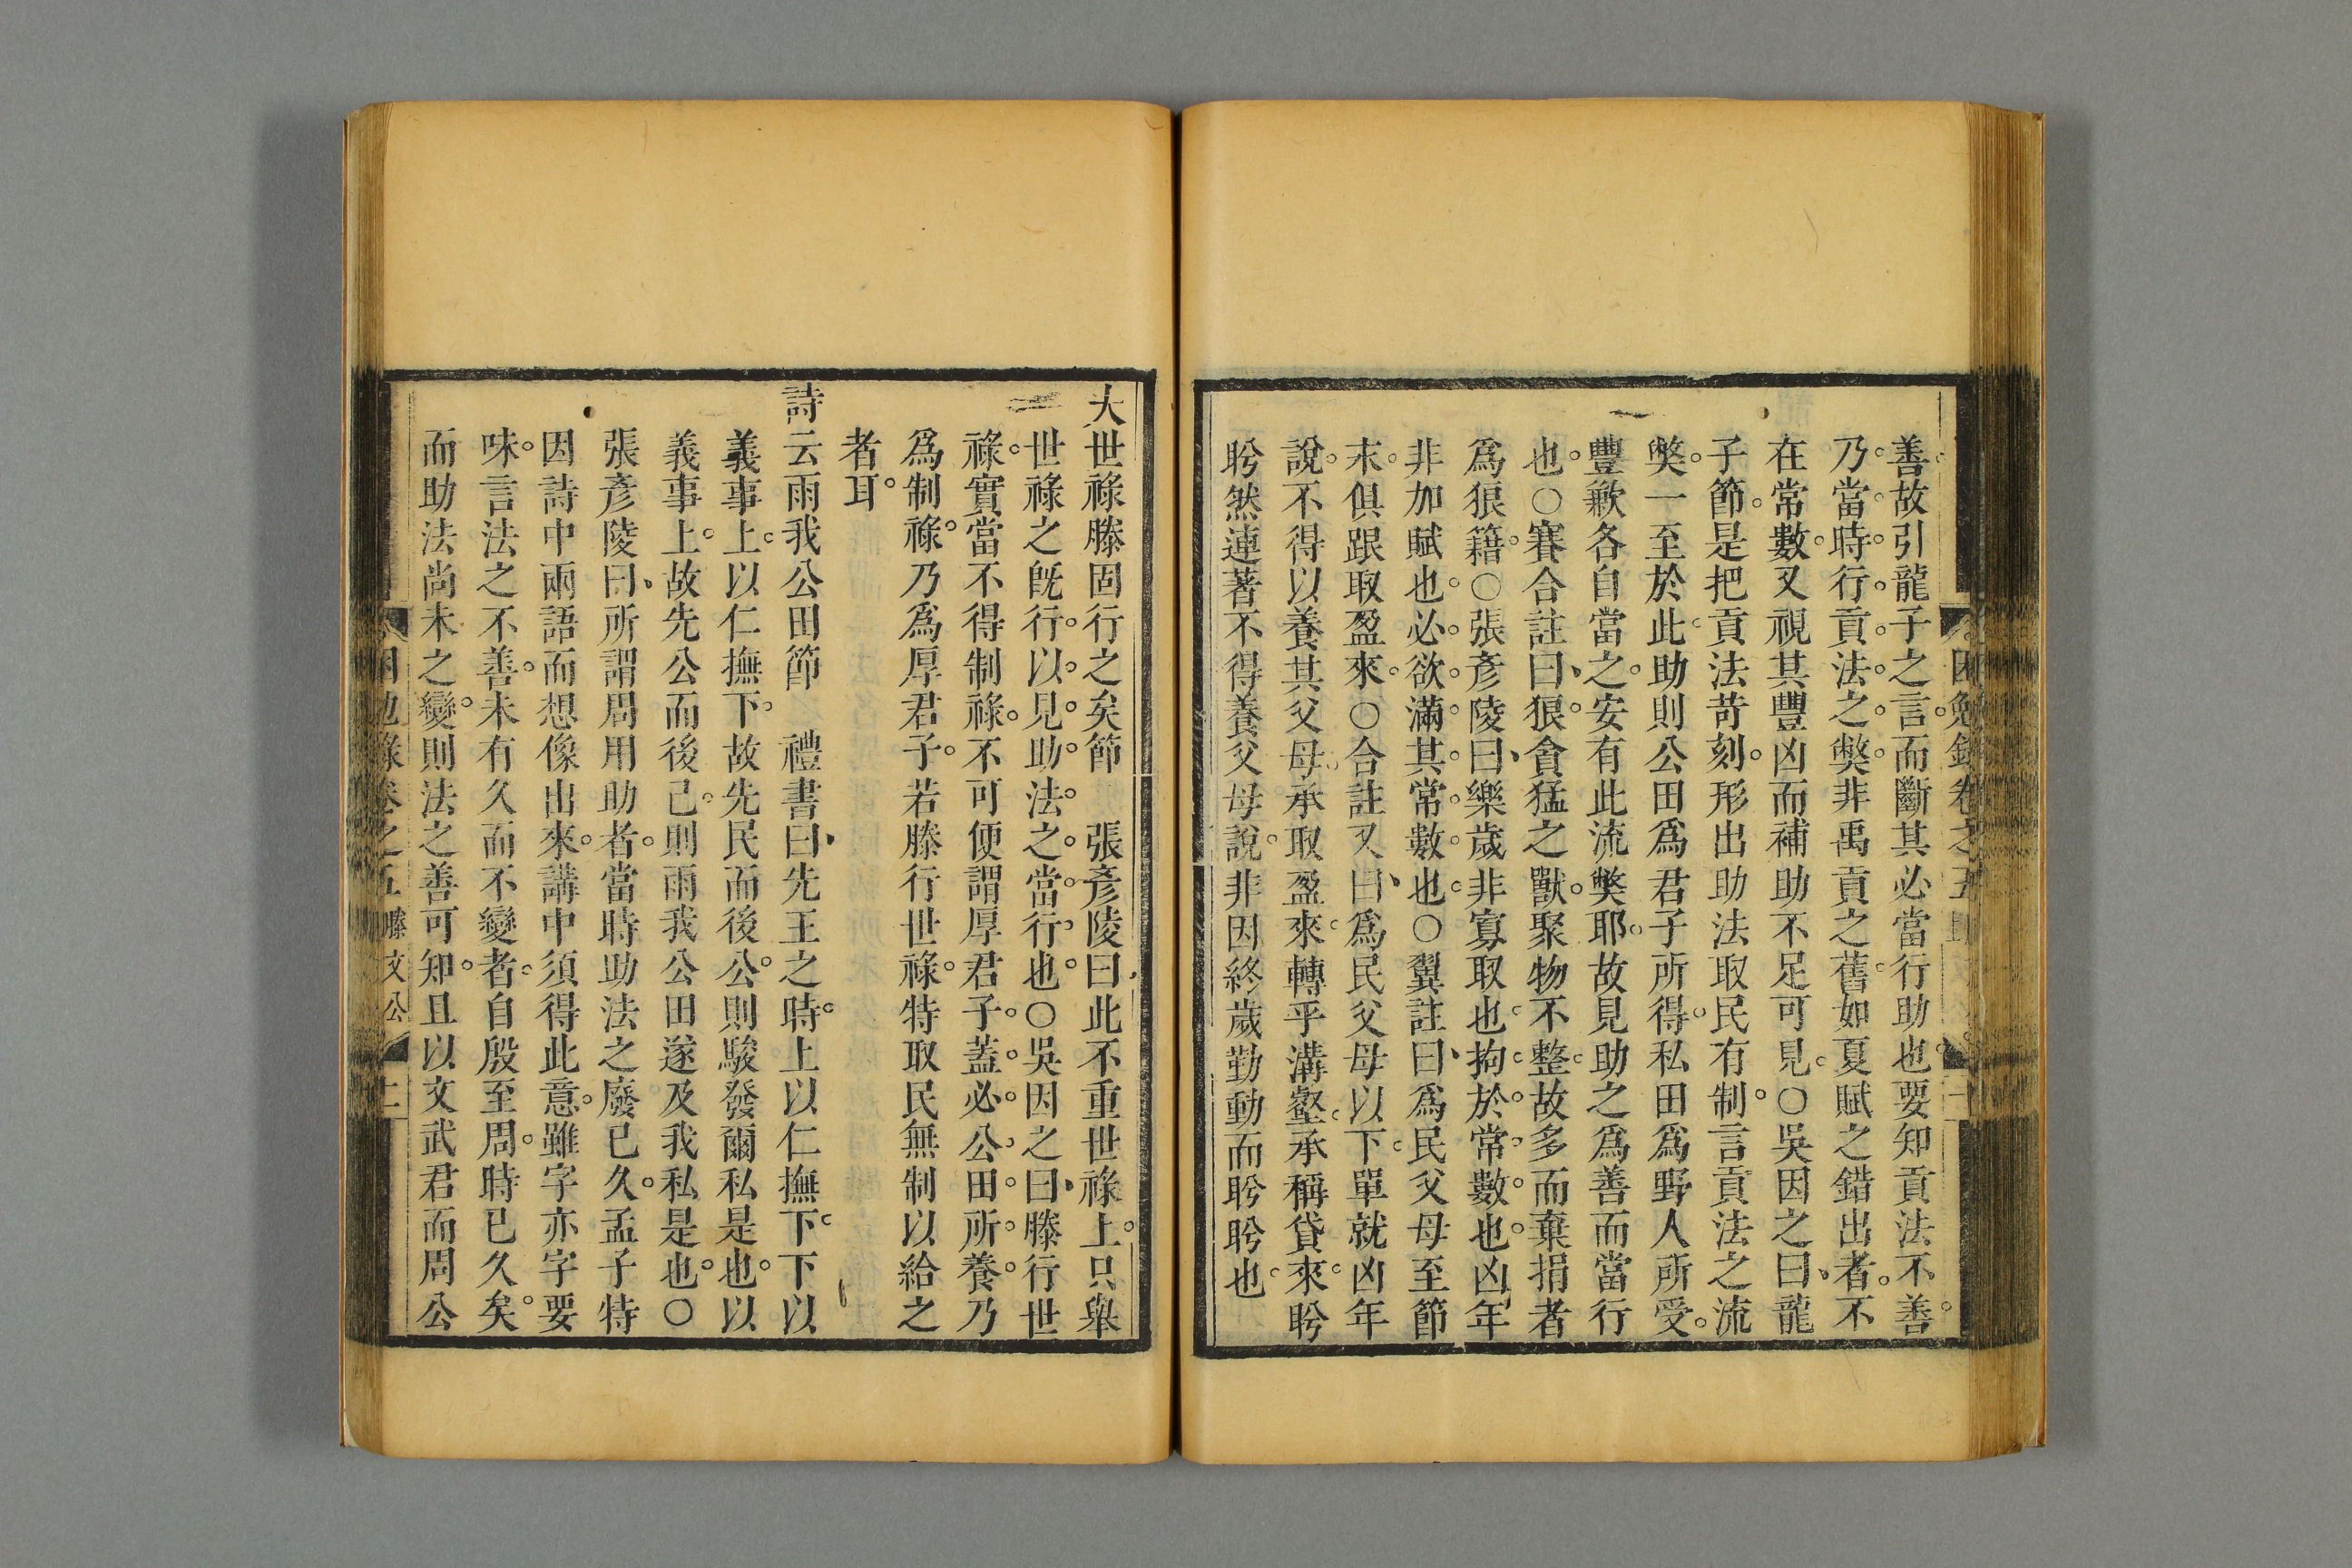 善故引龍子之言而斷其必當行助也要知貢法不善
乃當時行貢法之獘非禹貢之舊如夏賦之錯出者不
在常數又視其豐凶而補助不足可見○吳因之曰龍
子節是把貢法苛刻形出助法取民有制言貢法之流
獘一至於此助則公田爲君子所得私田爲野人所受
豐歉各自當之安有此流獘耶故見助之爲善而當行
也○賽合註曰狠貪猛之獸聚物不整故多而棄捐者
爲狠籍○張彥陵曰樂歲非寡取也拘於常數也凶年
非加賦也必欲滿其常數也○翼註曰爲民父母至節
末俱跟取盈來○合註又曰爲民父母以下單就凶年
說不得以養其父母承取盈來轉乎溝壑承稱貸來盻
盻然連著不得養父母說非因終歲勤動而盻盻也
大世祿滕固行之矣節 張彥陵曰此不重世祿上只舉
世祿之旣行以見助法之當行也○吳因之曰滕行世
祿實當不得制祿不可便謂厚君子蓋必公田所養乃
爲制祿乃爲厚君子若滕行世祿特取民無制以給之
者耳
詩云雨我公田節 禮書曰先王之時上以仁撫下下以
義事上以仁撫下故先民而後公則駿發爾私是也以
義事上故先公而後己則雨我公田遂及我私是也○
張彥陵曰所謂周用助者當時助法之廢已久孟子特
因詩中兩語而想像出來講中須得此意雖字亦字要
味言法之不善未有久而不變者自殷至周時已久矣
而助法尚未之變則法之善可知且以文武君而周公
困勉錄卷之五 滕文公